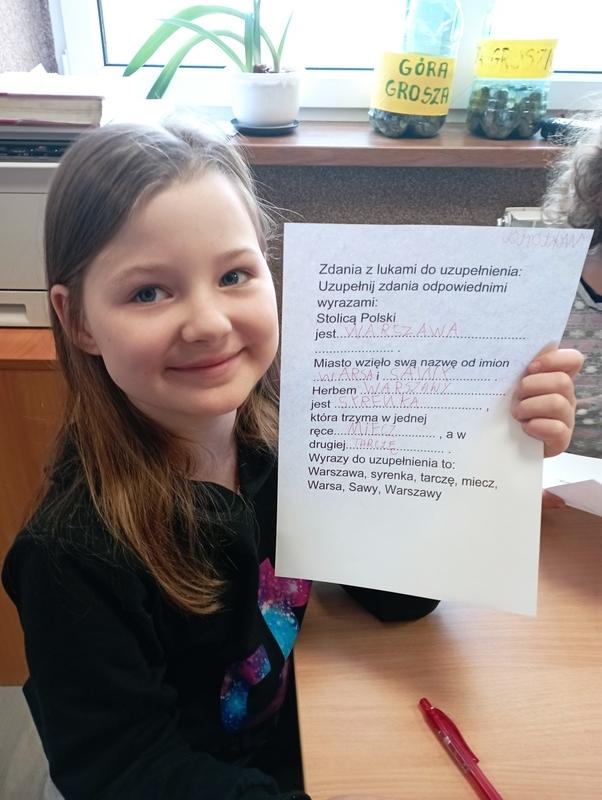 GÓRA
GROSZA
Zdania z lukami do uzupełnienia:
Uzupełnij zdania odpowiednimi
wyrazami:
Stolicą Polski
jest WARSZAWA
.
Miasto wzięło swą nazwę od imion
WARSA i SAWY .
Herbem WARSZAWY
jest SYRENKA ,
która trzyma w jednej
ręce MIECZ , a w
drugiej TARCZĘ .
Wyrazy do uzupełnienia to:
Warszawa, syrenka, tarczę, miecz,
Warsa, Sawy, Warszawy